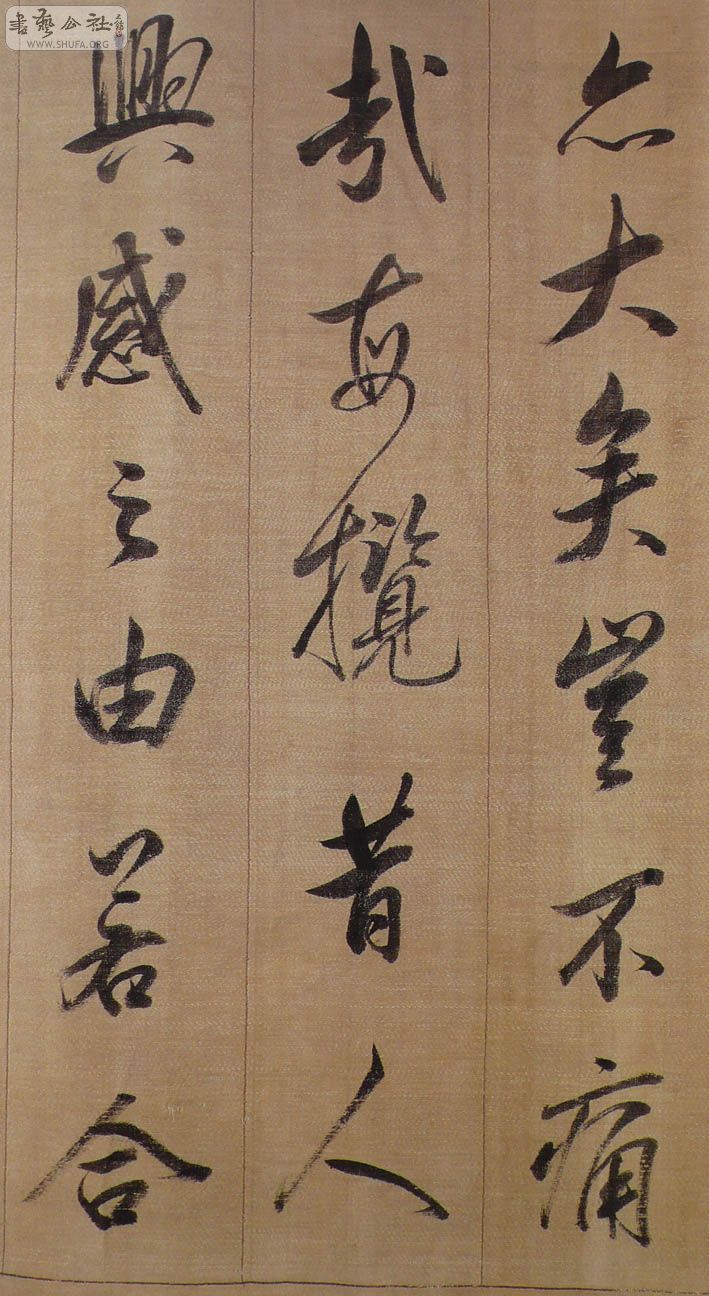 亦大矣豈不痛
哉每攬昔人
興感之由若合
書藝公社
WWW.SHUFA.ORG